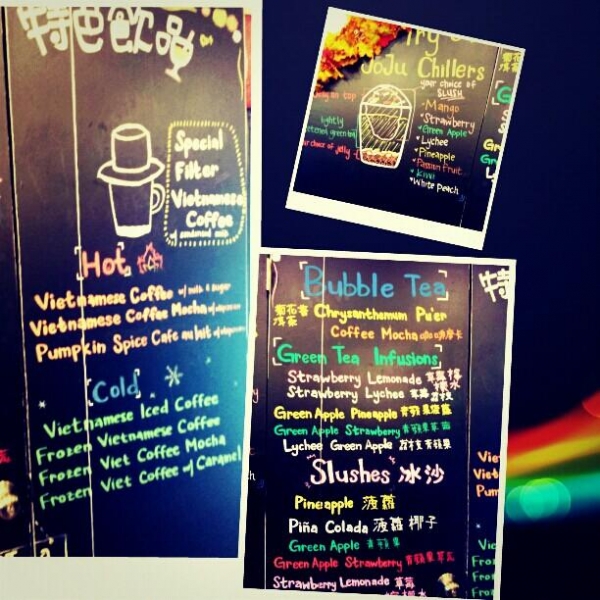 特色飲品
Special
Filter
Vietnamese
Coffee
w/ condensed milk
Hot
Vietnamese Coffee w/ milk & sugar
Vietnamese Coffee Mocha
Pumpkin Spice Cafe au lait
Cold
Vietnamese Iced Coffee
Frozen Vietnamese Coffee
Frozen Viet Coffee Mocha
Frozen Viet Coffee w/ Caramel
Try
JoJu Chillers
your choice of
SLUSH
on top
lightly
green tea
choice of jelly
Mango
Strawberry
Green Apple
Lychee
Pineapple
Passion Fruit
Kiwi
White Peach
Bubble Tea
Chrysanthemum Pu'er
Coffee Mocha
Green Tea Infusions
Strawberry Lemonade
Strawberry Lychee
Green Apple Pineapple 青蘋果菠蘿
Green Apple Strawberry
Lychee Green Apple
Slushes 冰沙
Pineapple 菠蘿
Piña Colada 菠蘿椰子
Green Apple 青蘋果
Green Apple Strawberry
Strawberry Lemonade
特